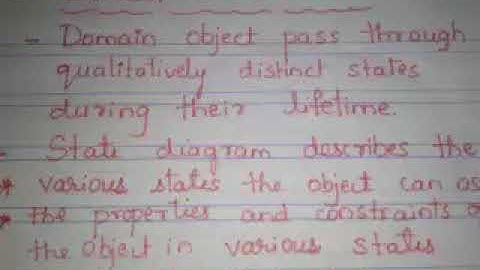 - Domain object pass through
qualitatively distinct states
during their lifetime.
- State diagram describes the
* various states the object can as
* the properties and constraints o
the object in various states